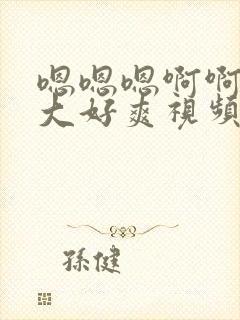 嗯嗯嗯啊啊
大好爽視頻
孫健